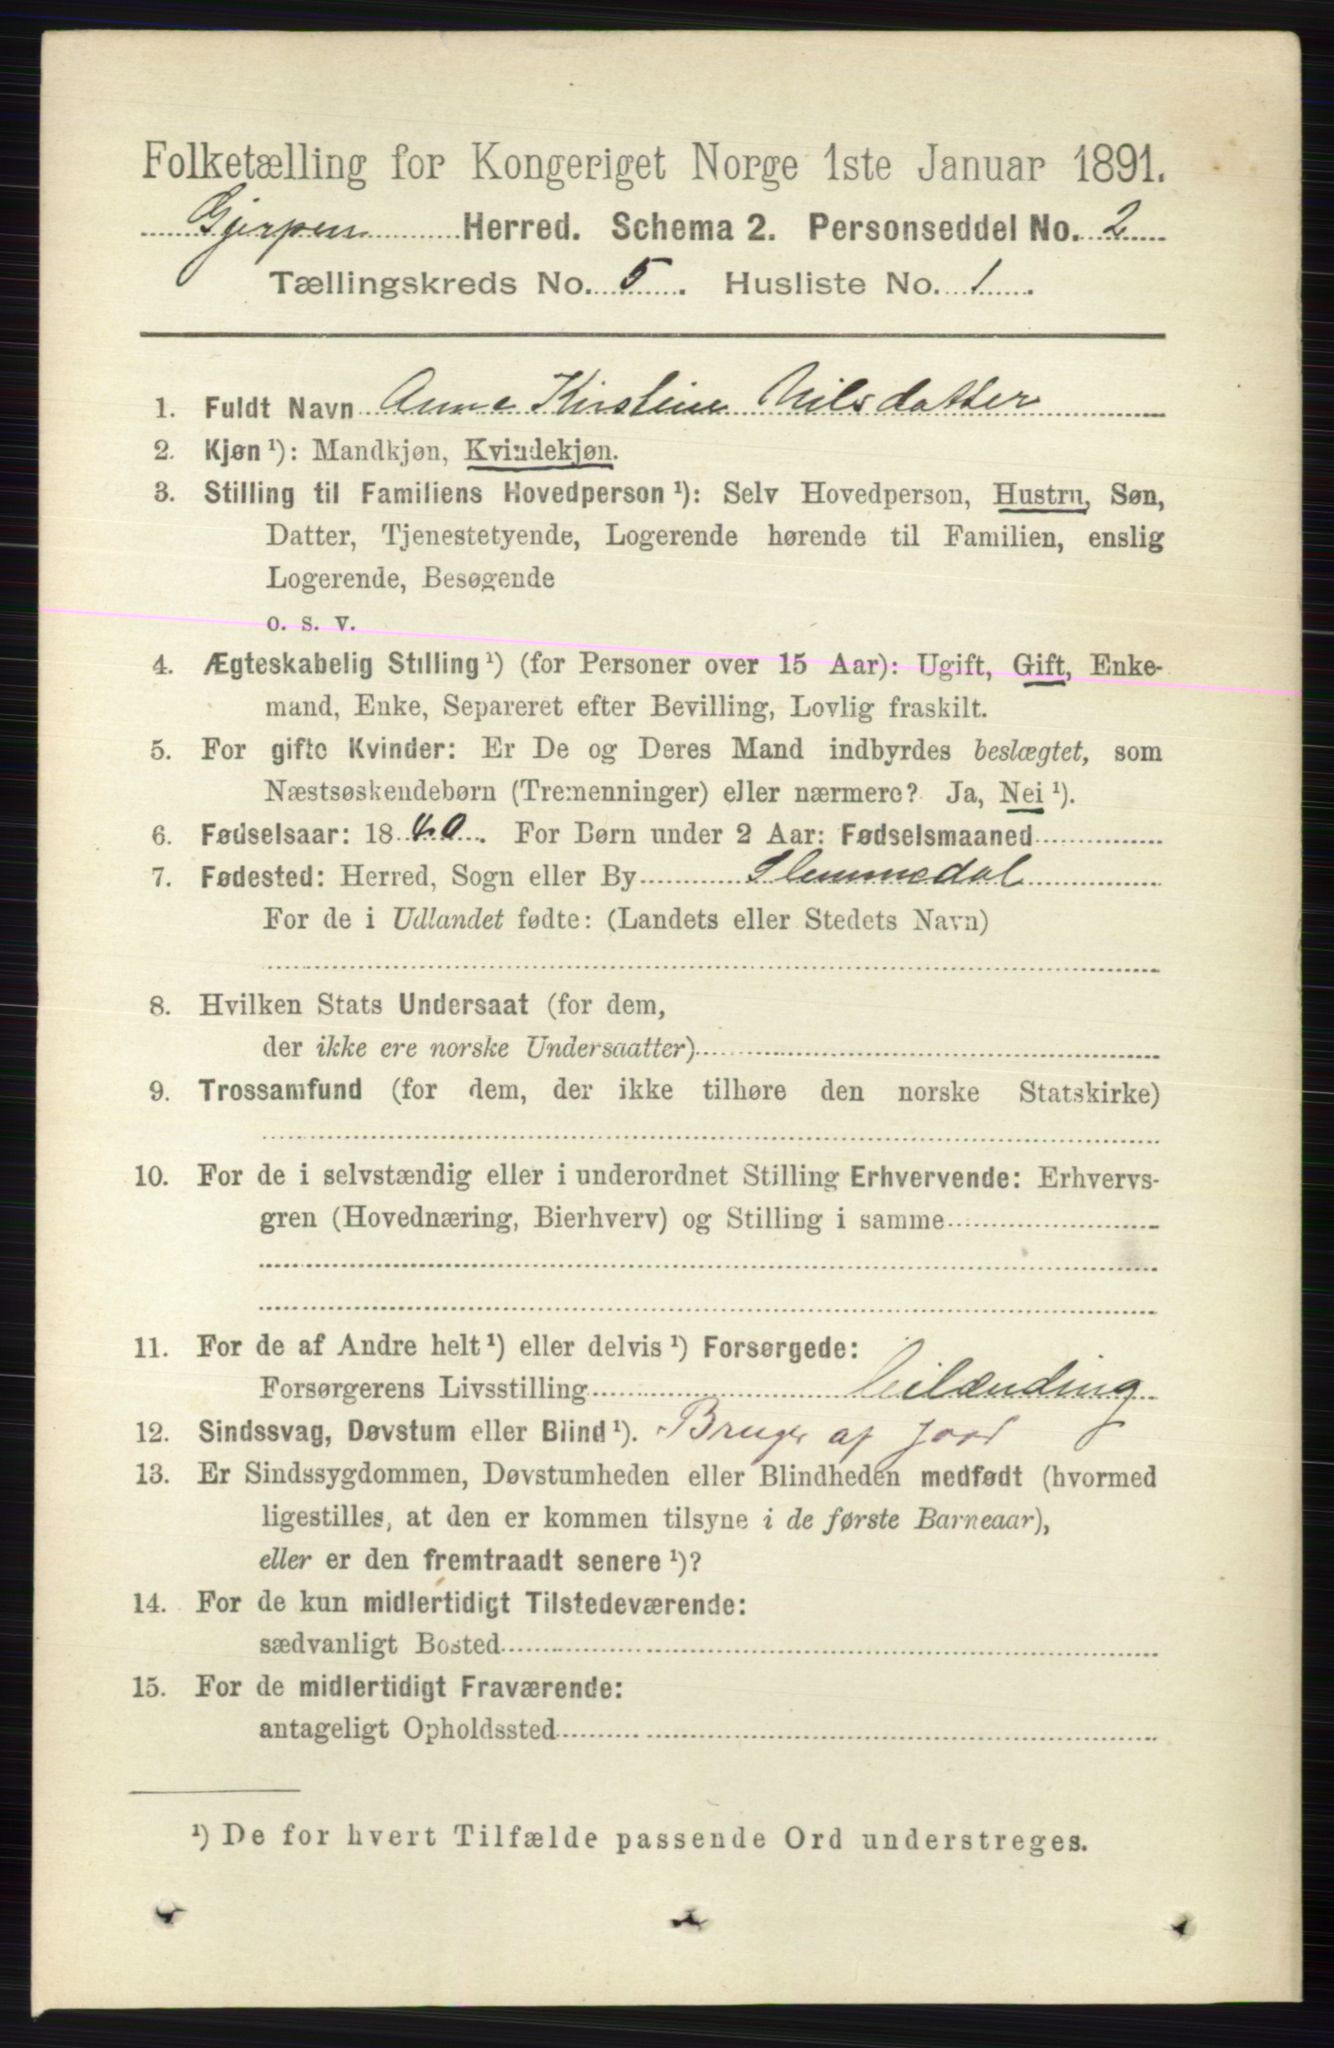 Folketælling for Kongeriget Norge 1ste Januar 1891.
Gjerpen Herred. Schema 2. Personseddel No. 2
Tællingskreds No. 5. Husliste No. 1.
1. Fuldt Navn Anne Kirstine Nilsdatter
2. Kjøn ¹): Mandkjøn, Kvindekjøn.
3. Stilling til Familiens Hovedperson ¹): Selv Hovedperson, Hustru, Søn,
Datter, Tjenestetyende, Logerende hørende til Familien, enslig
Logerende, Besøgende
o. s. v.
4. Ægteskabelig Stilling ¹) (for Personer over 15 Aar): Ugift, Gift, Enke-
mand, Enke, Separeret efter Bevilling, Lovlig fraskilt.
5. For gifte Kvinder: Er De og Deres Mand indbyrdes beslægtet, som
Næstsøskendebørn (Tremenninger) eller nærmere? Ja, Nei ¹).
6. Fødselsaar: 18. For Børn under 2 Aar: Fødselsmaaned
7. Fødested: Herred, Sogn eller By Slemmedal
For de i Udlandet fødte: (Landets eller Stedets Navn)
8. Hvilken Stats Undersaat (for dem,
der ikke ere norske Undersaatter)
9. Trossamfund (for dem, der ikke tilhøre den norske Statskirke)
10. For de i selvstændig eller i underordnet Stilling Erhvervende: Erhvervs-
gren (Hovednæring, Bierhverv) og Stilling i samme
11. For de af Andre helt ¹) eller delvis ¹) Forsørgede:
Forsørgerens Livsstilling Leilænding
12. Sindssvag, Døvstum eller Blind ¹). Bruger af Jord
13. Er Sindssygdommen, Døvstumheden eller Blindheden medfødt (hvormed
ligestilles, at den er kommen tilsyne i de første Barneaar),
eller er den fremtraadt senere ¹)?
14. For de kun midlertidigt Tilstedeværende:
sædvanligt Bosted
15. For de midlertidigt Fraværende:
antageligt Opholdssted
¹) De for hvert Tilfælde passende Ord understreges.